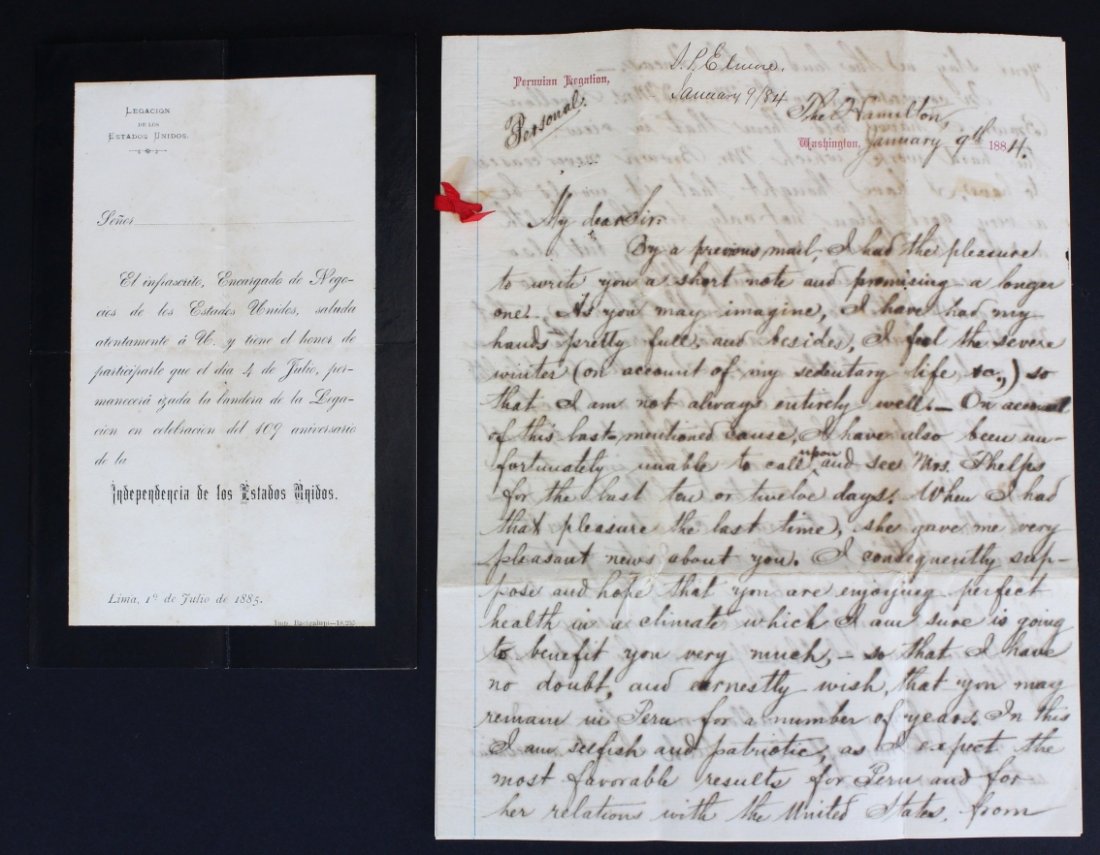 LEGACION
DE LOS
ESTADOS UNIDOS.
Señor
El infrascrito, Encargado de Nego-
cios de los Estados Unidos, saluda
atentamente á U. y tiene el honor de
participarle que el dia 4 de Julio, per-
manecerá izada la bandera de la Lega-
cion en celebracion del 109 aniversario
de la
Independencia de los Estados Unidos.
Lima, 1º de Julio de 1885.
Imp. Bacigalupi—18,235
J. F. Elmore.
January 9/84
Peruvian Legation,
Personal.
The Hamilton,
Washington, January 9th 1884.
My dear Sir:
By a previous mail, I had the pleasure
to write you a short note and promising a longer
one. As you may imagine, I have had my
hands pretty full, and besides, I feel the severe
winter (on account of my sedentary life &c.,) so
that I am not always entirely well. — On account
of this last-mentioned cause, I have also been un-
fortunately unable to call upon and see Mrs. Phelps
for the last ten or twelve days. When I had
that pleasure the last time, she gave me very
pleasant news about you. I consequently sup-
pose and hope that you are enjoying perfect
health in a climate which I am sure is going
to benefit you very much, — so that I have
no doubt, and earnestly wish, that you may
remain in Peru for a number of years. In this
I am selfish and patriotic, as I expect the
most favorable results for Peru and for
her relations with the United States, from